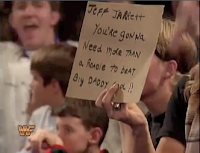 JEFF JARRETT
YOU'RE GONNA
NEED MORE THAN
A ROADIE TO BEAT
BIG DADDY COOL!!
WWF